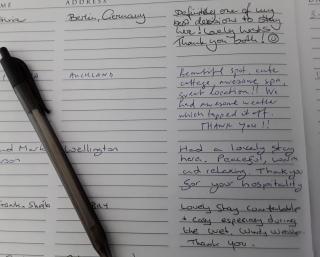 ADDRESS
Berlin, Germany
Definitely one of my
best decisions to stay
here! Lovely hosts!
Thank you both! ☺
AUCKLAND
Beautiful spot, cute
cottage, awesome spa,
great location!! We
had awesome weather
which topped it off.
THANK YOU!!
Mark
Wellington
Had a lovely stay
here. Peaceful, warm
and relaxing. Thank you
for your hospitality
Lovely stay comfortable
& cosy especially during
the wet, windy weather
Thank you.